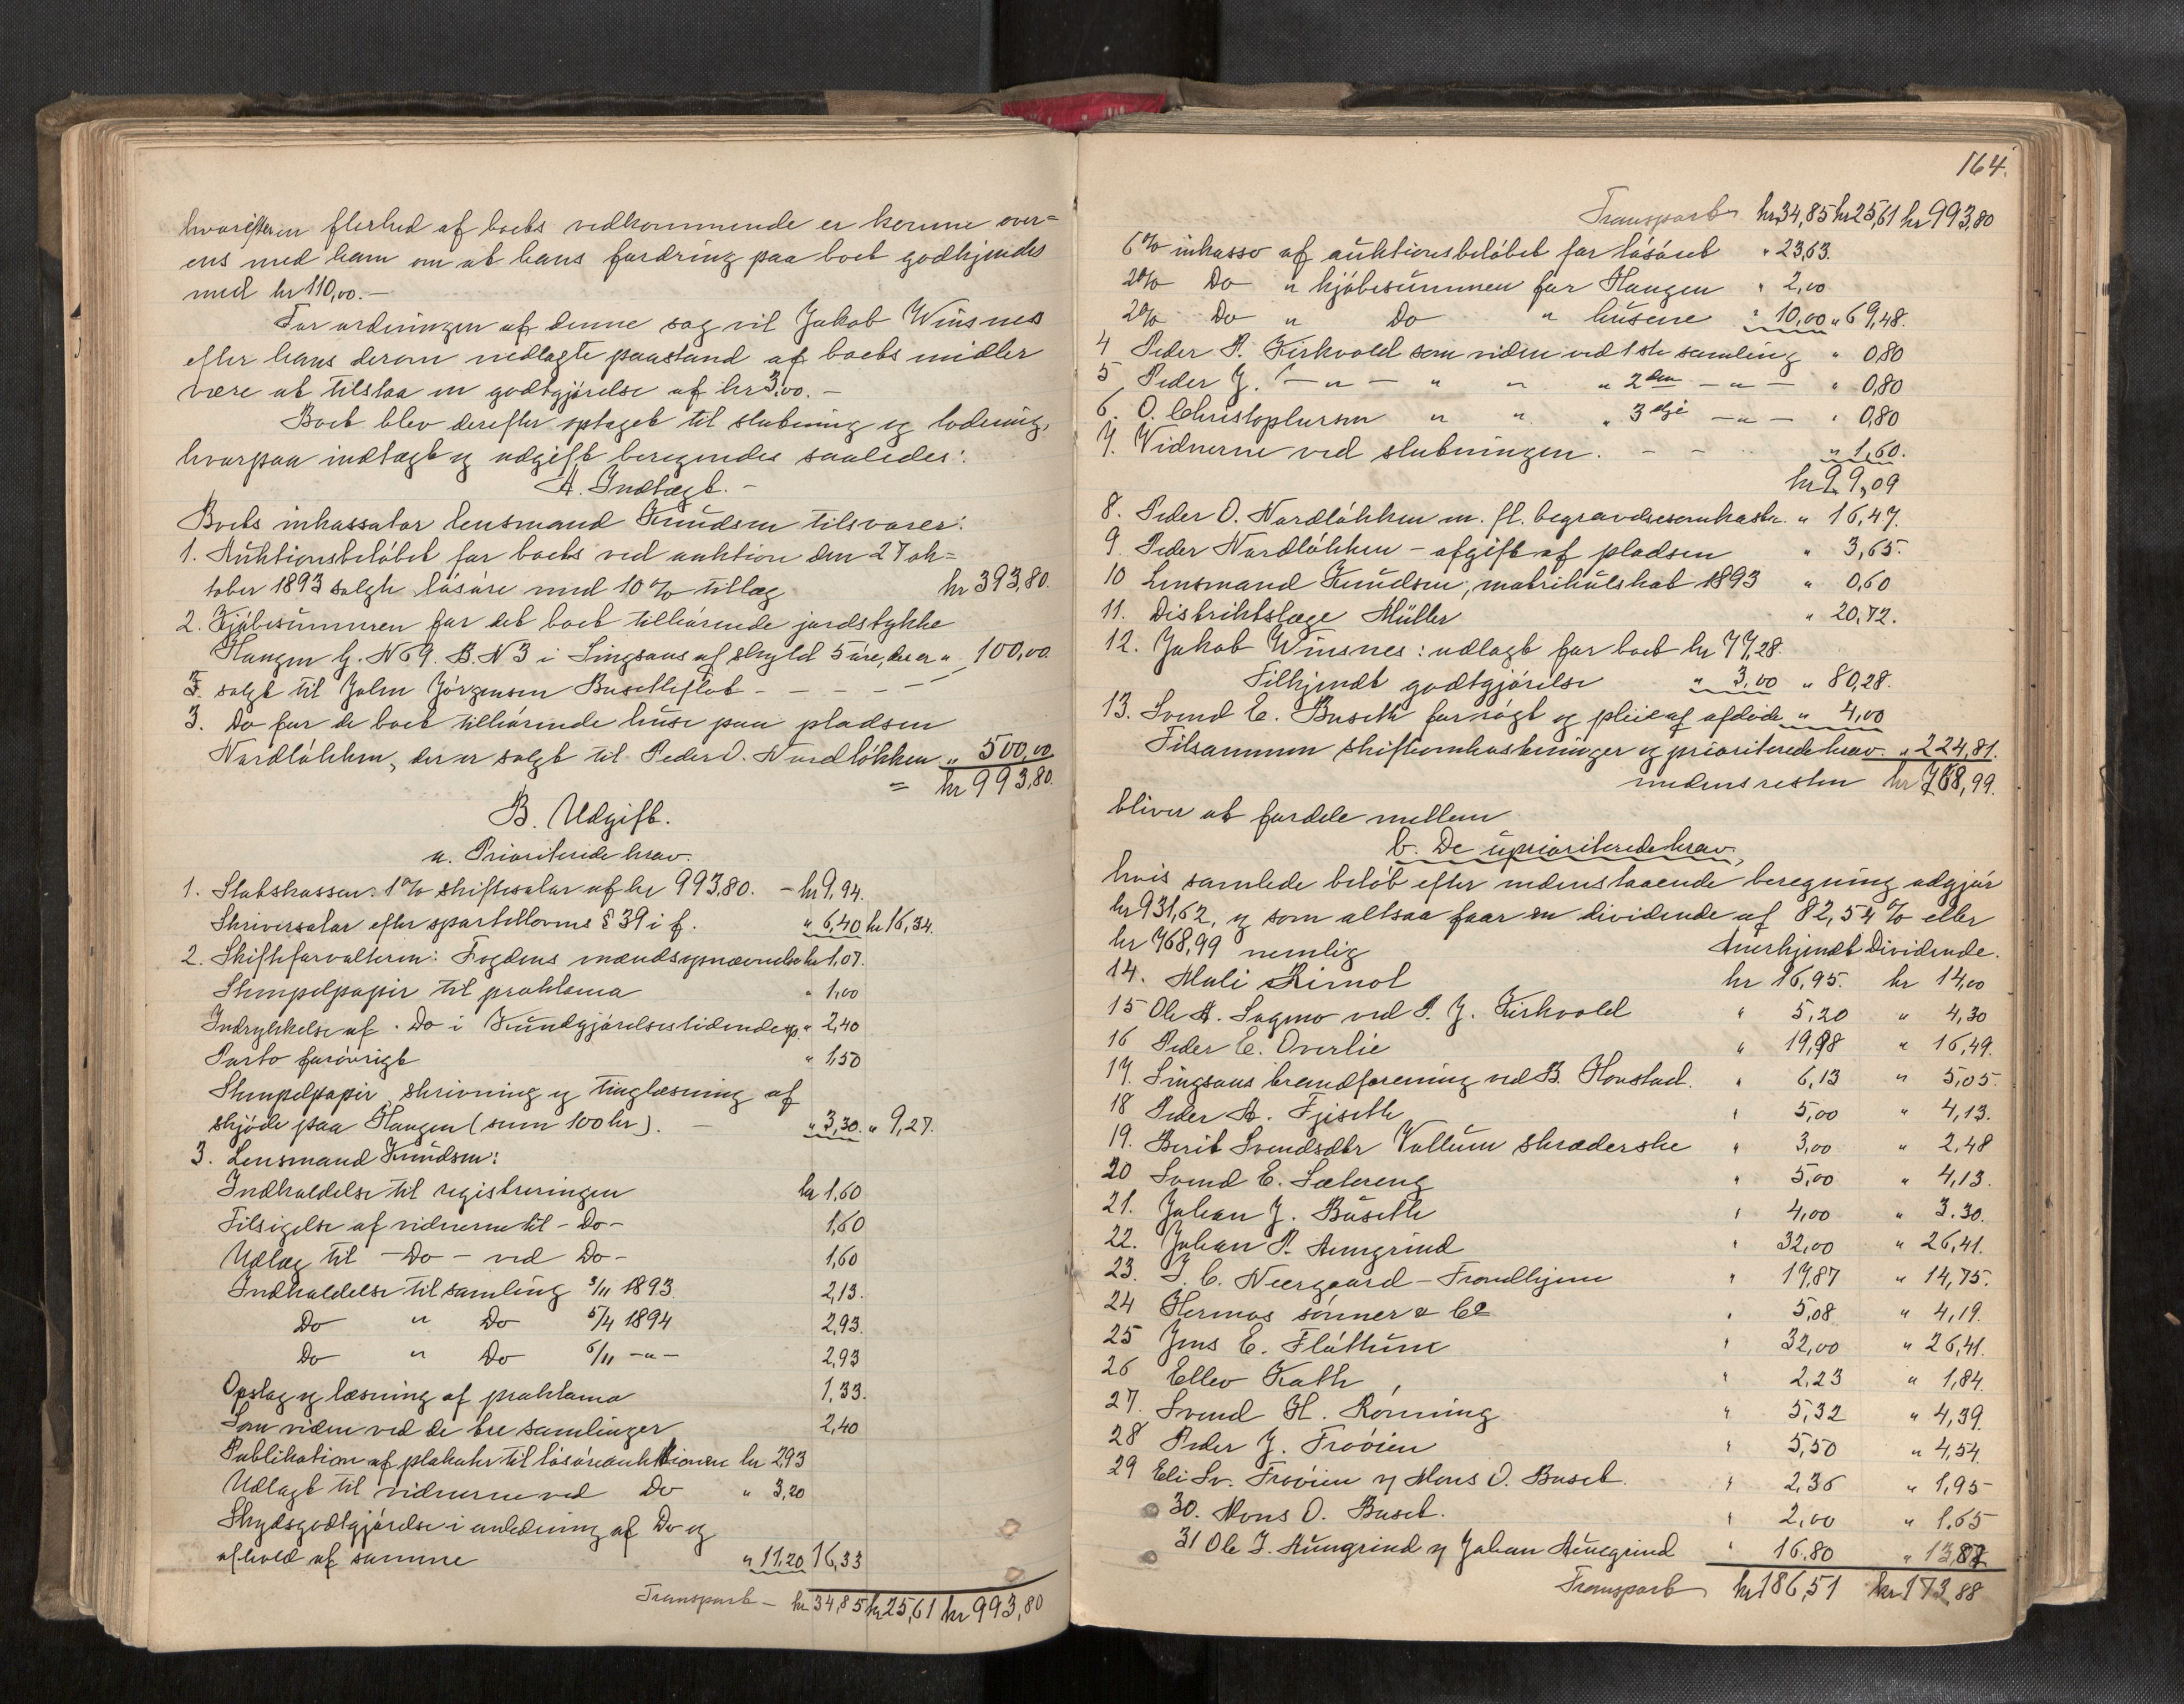 hvorefter en flerhed af boets vedkommende er komne over=
ens med ham om at hans fordring paa boet godkjendes
med kr 110,00. –
For ordningen af denne sag vil Jakob Winsnes
efter hans derom nedlagte paastand af boets midler
være at tilstaa en godtgjørelse af kr 3,00. –
Boet blev derefter optaget til slutning og lodning,
hvorpaa indtægt og udgift beregnedes saaledes:
A. Indtægt. –
Boets inkassator lensmand Knudsen tilsvarer:
1. Auktionsbeløbet for boets ved auktion den 27 ok=
tober 1893 solgte løsøre med 10 % tillæg kr 393,80.
2. Kjøbesummen for det boet tilhørende jordstykke
Haugen G. No 9. B. N 3 i Singsaas af skyld 5 øre, der er " 100,00
solgt til Johan Jørgensen Busetheflot – – – –
3. Do for de boet tilhørende huse paa pladsen
Nordløkken, der er solgt til Peder O. Nordløkken " 500,00
= kr 993,80.
B. Udgift.
a. Prioriterede krav.
1. Statskassen: 1 % skiftesalar af kr 993,80. – kr 9,94.
Skriversalar efter sportellovens § 39 i f. " 6,40 kr 16,34.
2. Skifteforvalteren: Fogdens mændsopnævnelse kr 1,07.
Stempelpapir til proklama " 1,00
Indrykkelse af Do i Kundgjørelsestidende op. " 2,40
Porto forøvrigt " 1,50
Stempelpapir, skrivning og tinglæsning af
skjøde paa Haugen (sum 100 kr). – " 3,30. " 9,27.
3. Lensmand Knudsen:
Indkaldelse til registreringen kr 1,60
Tilsigelse af vidnerne til – Do – 1,60
Udlæg til – Do – ved Do – 1,60
Indkaldelse til samling 3/11 1893. 2,13.
Do " Do 5/4 1894 2,93.
Do " Do 5/11 – " – 2,93
Opslag og læsning af proklama 1,33.
Som viden ved de tre samlinger 2,40
Publikation af plakater til løsøreauktionen kr 2,93
Udlagt til vidnerne ved Do " 3,20
Skydsgodtgjørelse i anledning af Do og
afhold af samme " 11,20 16,33
Transport – kr 34,85 kr 25,61 kr 993,80
164.
Transport kr 34,85 kr 25,61 kr 993,80
6 % inkasso af auktionsbeløbet for løsøret " 23,63.
2 % Do " kjøbesummen for Haugen " 2,00
2 % Do " Do " husene " 10,00 " 69,48.
4 Peder P. Kirkvold som viden ved 1ste samling " 0,80
5 Peder J. – " – " " " 2den – " – " 0,80
6. O. Christophersen " " " 3dje – " – " 0,80
7. Vidnerne ved slutningen. – – " 1,60.
kr 99,09
8. Peder O. Nordløkken m. fl. begravelsesomkostn. " 16,47.
9 Peder Nordløkken – afgift af pladsen " 3,65.
10 Lensmand Knudsen, matrikulskat 1893 " 0,60
11. Distriktslæge Müller " 20,72.
12. Jakob Winsnes: udlagt for boet kr 77,28.
Tilkjendt godtgjørelse " 3,00 " 80,28.
13. Svend E. Buseth for røgt og pleie af afdøde " 4,00
Tilsammen skifteomkostninger og prioriterede krav. " 224,81.
medens resten kr 768,99.
bliver at fordele mellem
b. De uprioriterede krav,
hvis samlede beløb efter nedenstaaende beregning udgjør
kr 931,62, og som altsaa faar en dividende af 82,54 % eller
kr 768,99 nemlig Anerkjendt Dividende.
14. Mali Rimol kr 16,95. kr 14,00
15 Ole A. Sagmo ved P. J. Kirkvold " 5,20 " 4,30
16 Peder E. Overlie " 19,98 " 16,49.
17. Singsaas brandforening ved B. Hovstad. " 6,13 " 5,05.
18 Peder A. Fjiseth " 5,00 " 4,13.
19. Berit Svendsdtr Vollum skræderske " 3,00 " 2,48
20 Svend E. Sætereng " 5,00 " 4,13.
21. Johan J. Buseth " 4,00 " 3.30.
22. Johan P. Aungrind " 32,00 " 26,41.
23. I. C. Neergaard – Trondhjem " 17,87 " 14,75.
24 Hermos sønner & Co " 5,08 " 4,19.
25 Jens E. Fløttum " 32,00 " 26,41.
26 Ellev Kath " 2,23 " 1,84.
27. Svend H. Rønning " 5,32 " 4,39.
28 Peder J. Frøøien " 5,50 " 4,54
29 Eli Sv. Frøøien og Mons O. Buset. " 2,36 " 1,95
30. Mons O. Buset. " 2,00 " 1,65
31 Ole J. Aungrind og Johan Aungrind " 16.80 " 13,87
Transport kr 186,51 kr 173,88